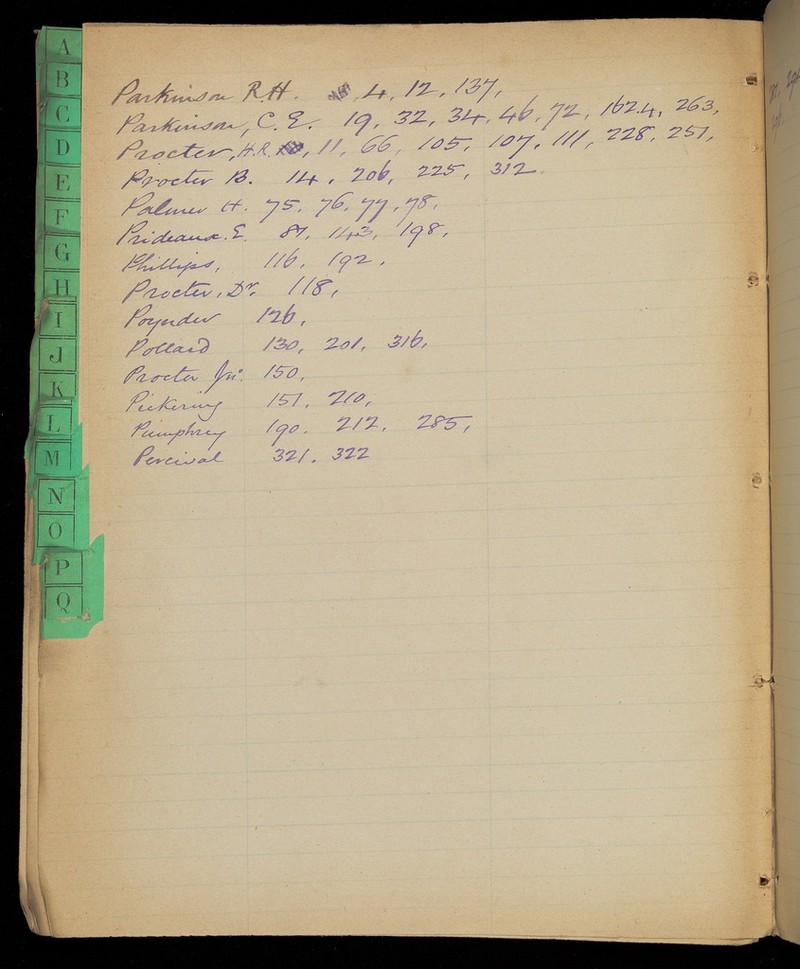 A
B
C
D
E
F
G
H
I
J
K
L
M
N
O
P
Q
Parkinson R.H. 4, 12, 137,
Parkinson, C. E. 19, 32, 34, 46, 72, 162.4, 263,
Procter, H.R. 11, 66, 105, 107, 111, 228, 257,
Procter B. 14, 206, 225, 312.
Palmer H. 75, 76, 77, 78,
Prideaux. E. 87, 143, 198,
Phillips, 116, 192,
Procter, Dr. 118,
Poynder 126,
Pollard 130, 201, 316,
Procter Jnr. 150,
Pickering 151, 210,
Pumphrey 190. 212, 285,
Percival 321. 322